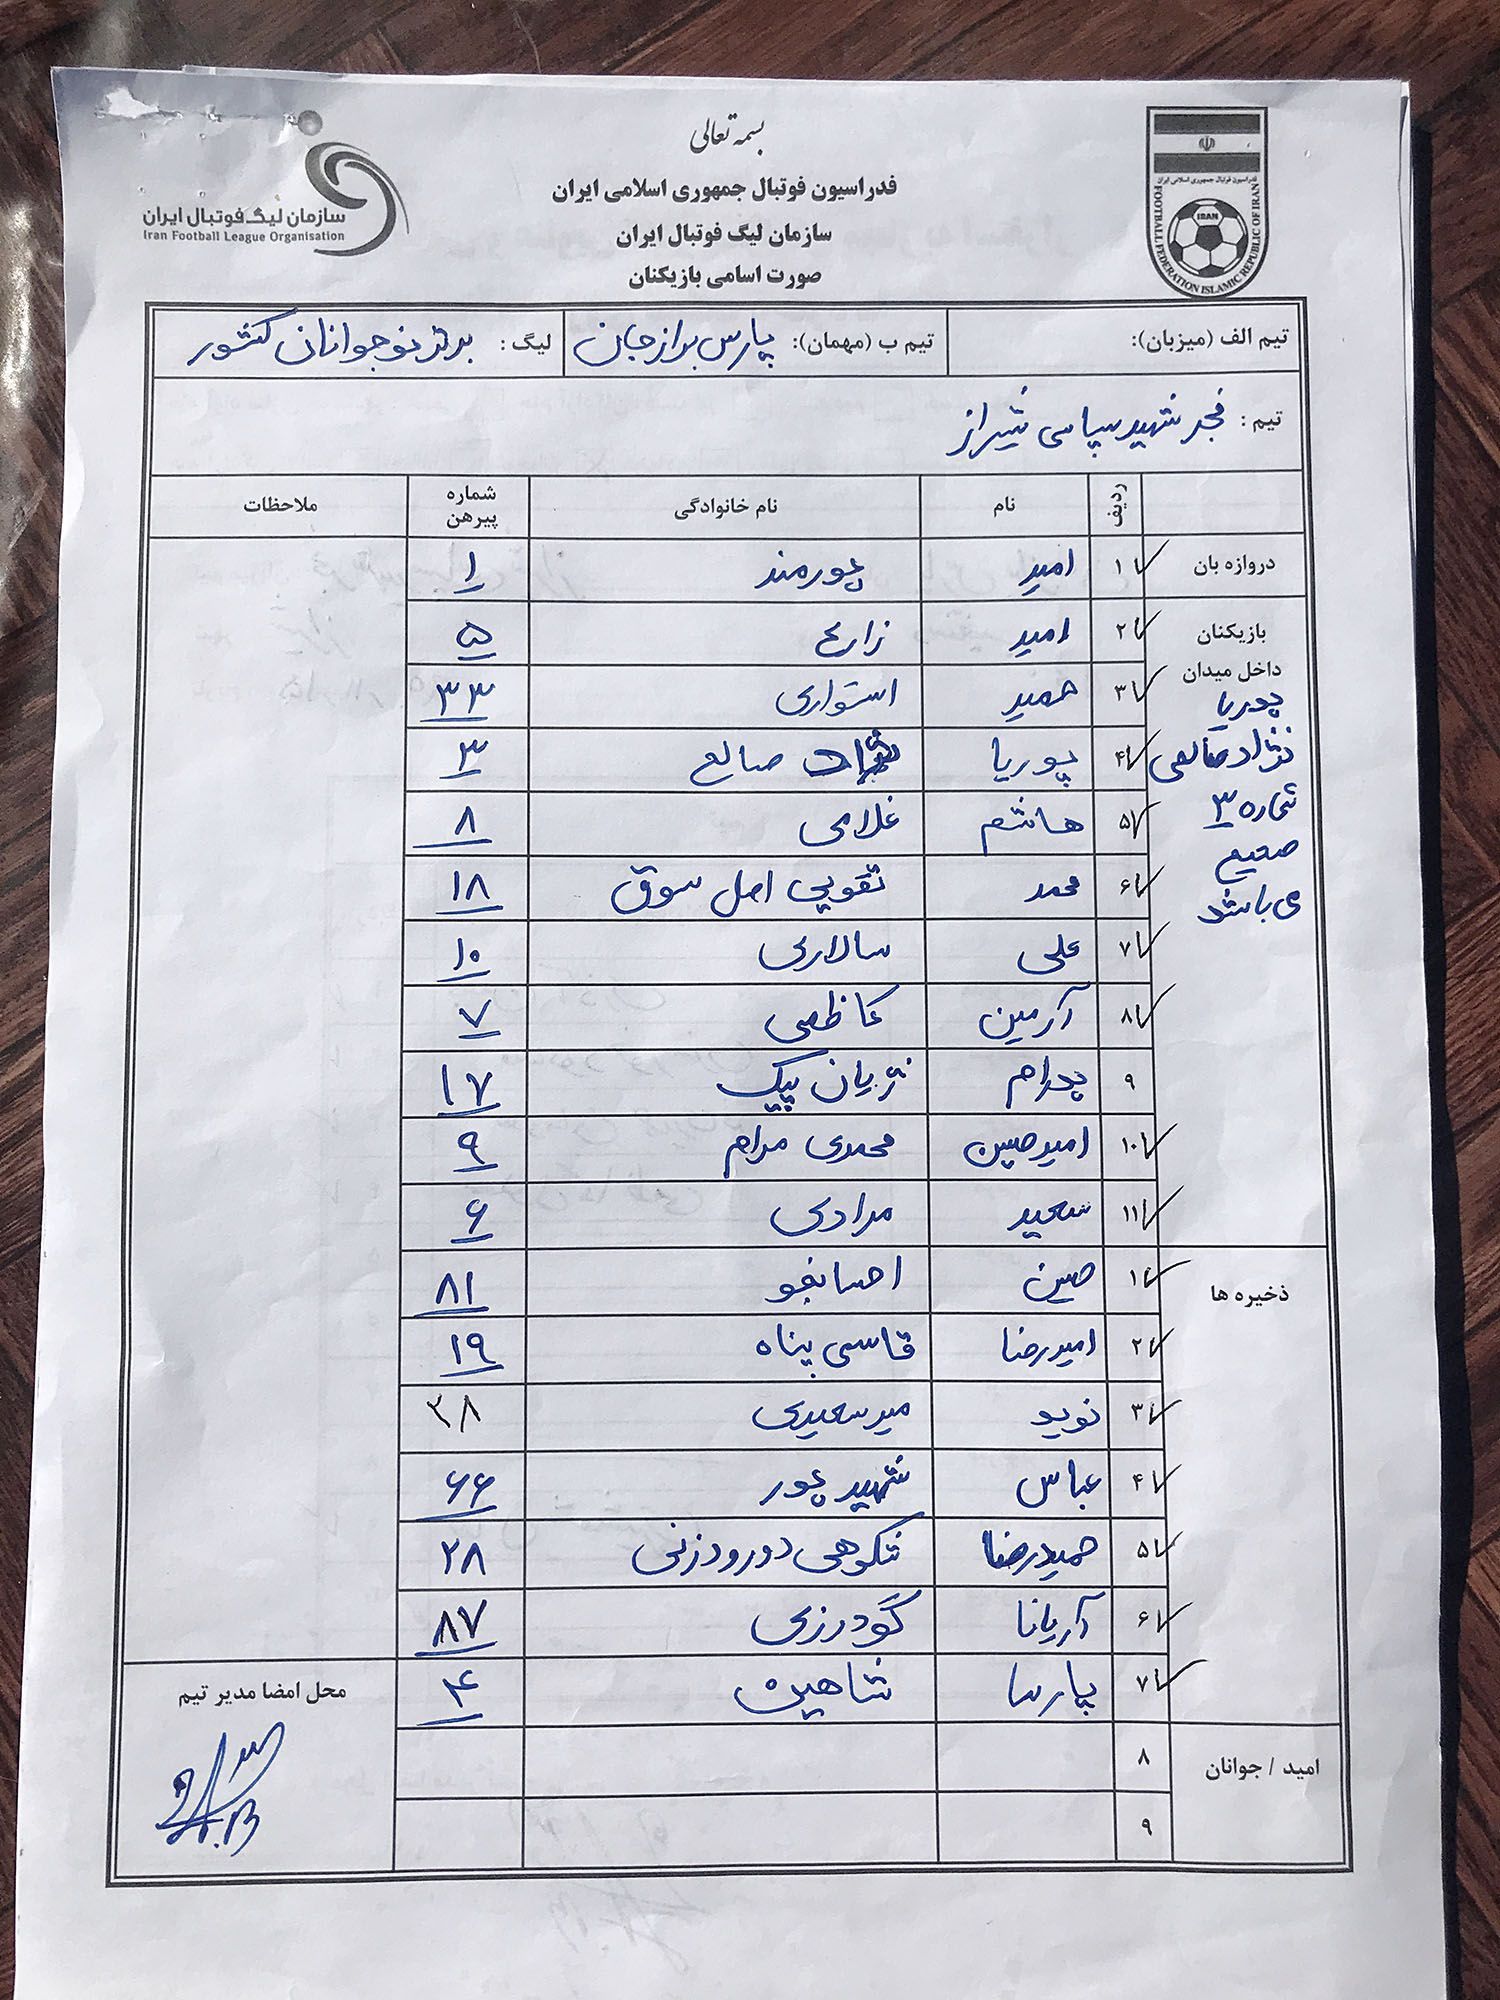 بسمه تعالی
فدراسیون فوتبال جمهوری اسلامی ایران
سازمان لیگ فوتبال ایران
صورت اسامی بازیکنان
سازمان لیگ فوتبال ایران
Iran Football League Organisation
فدراسیون فوتبال جمهوری اسلامی ایران
IRAN
FOOTBALL FEDERATION ISLAMIC REPUBLIC OF IRAN
تیم الف (میزبان): تیم ب (مهمان): پارس برازجان لیگ : برتر نوجوانان کشور
تیم : فجر شهید سپاسی شیراز
ردیف نام نام خانوادگی شماره پیرهن ملاحظات
دروازه بان ۱ امید پورمند ۱
بازیکنان داخل میدان
۲ امید زارع ۵
۳ حمید استواری ۳۳
۴ پوریا صالح ۳
۵ هاشم غلامی ۸
۶ محمد تقویی اصل سوق ۱۸
۷ علی سالاری ۱۰
۸ آرمین کاظمی ۷
۹ پدرام نریان پیک ۱۷
۱۰ امیرحسین محمدی مرام ۹
۱۱ سعید مرادی ۶
پوریا
نژاد صالحی
شماره ۳
صحیح
می باشد
ذخیره ها
۱ حسین احسانجو ۸۱
۲ امیررضا قاسمی پناه ۱۹
۳ نوید میرسعیدی ۳۸
۴ عباس شهید پور ۶۶
۵ حمیدرضا شکوهی دورودزنی ۲۸
۶ آریانا گودرزی ۸۷
۷ پارسا شاهین ۴
امید / جوانان
۸
۹
محل امضا مدیر تیم